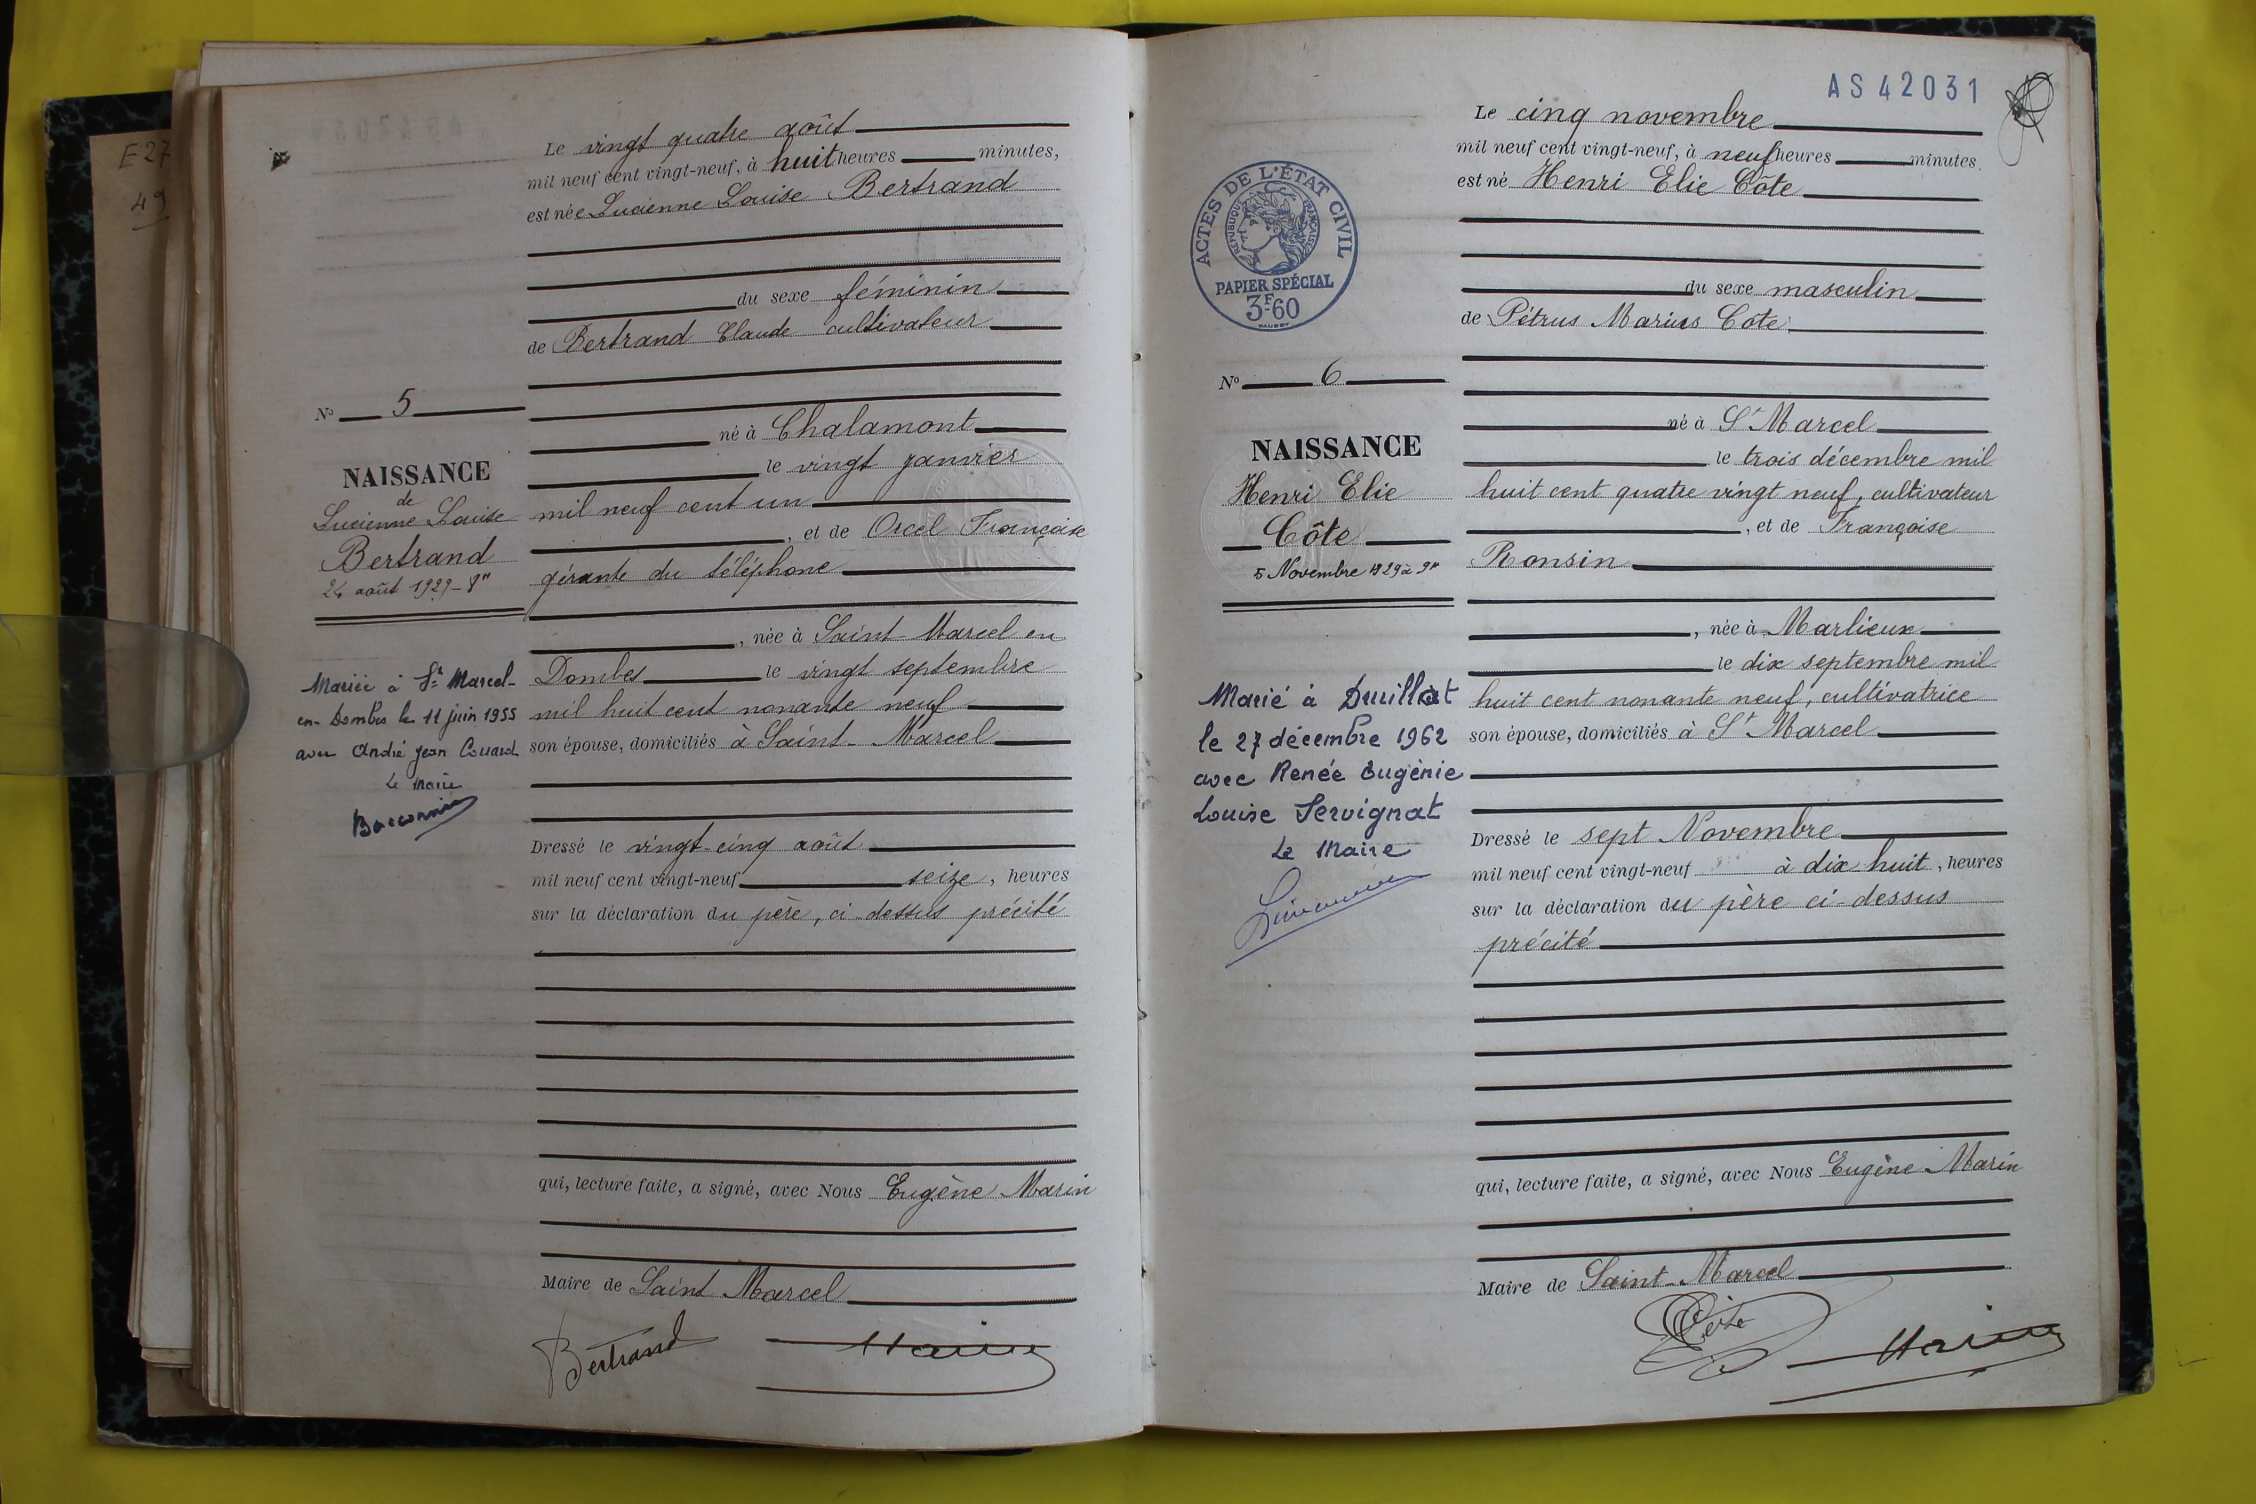 E 27
49
Le vingt quatre août
mil neuf cent vingt-neuf, à huit heures minutes,
est née Lucienne Louise Bertrand
du sexe féminin
de Bertrand Claude cultivateur
né à Chalamont
le vingt janvier
mil neuf cent un
, et de Orcel Françoise
gérante du téléphone
, née à Saint-Marcel en
Dombes le vingt septembre
mil huit cent nonante neuf
son épouse, domiciliés à Saint-Marcel
Dressé le vingt-cinq août
mil neuf cent vingt-neuf seize, heures
sur la déclaration du père, ci-dessus précité
qui, lecture faite, a signé, avec Nous Eugène Marin
Maire de Saint Marcel
Bertrand Marin
No 5
NAISSANCE
de
Lucienne Louise
Bertrand
24 août 1929 - 8h
Mariée à St Marcel-
en-Dombes le 11 juin 1955
avec André Jean Couard
Le Maire
AS 42031
Le cinq novembre
mil neuf cent vingt-neuf, à neuf heures minutes.
est né Henri Elie Côte
du sexe masculin
de Pétrus Marius Côte
né à St Marcel
le trois décembre mil
huit cent quatre vingt neuf, cultivateur
, et de Françoise
Ronsin
, née à Marlieux
le dix septembre mil
huit cent nonante neuf, cultivatrice
son épouse, domiciliés à St Marcel
Dressé le sept Novembre
mil neuf cent vingt-neuf à dix huit, heures
sur la déclaration du père ci-dessus
précité
qui, lecture faite, a signé, avec Nous Eugène Marin
Maire de Saint-Marcel
Côte Marin
ACTES DE L'ÉTAT CIVIL
RÉPUBLIQUE FRANÇAISE
PAPIER SPÉCIAL
3F60
No 6
NAISSANCE
Henri Elie
Côte
5 Novembre 1929 à 9h
Marié à Druillat
le 27 décembre 1962
avec Renée Eugénie
Louise Servignat
Le Maire